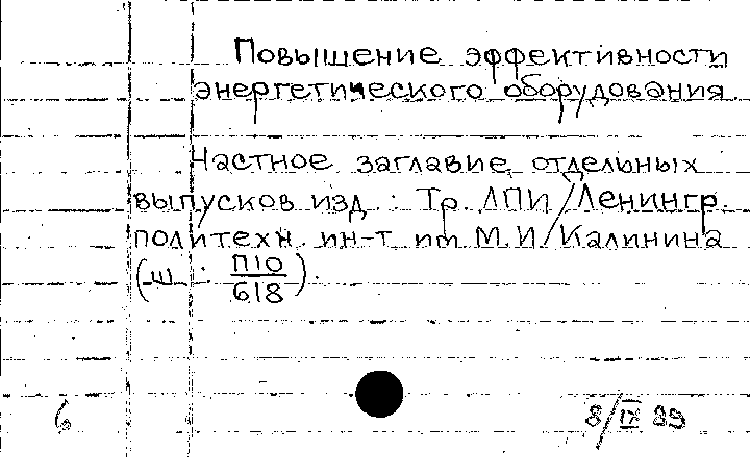 Повышение эффективности
энергетического оборудования.
Частное заглавие отдельных
выпусков изд. : Тр. ЛПИ / Ленингр.
политехн. ин-т им М.И. Калинина
(ш : П10/618).
6
8/IX 89